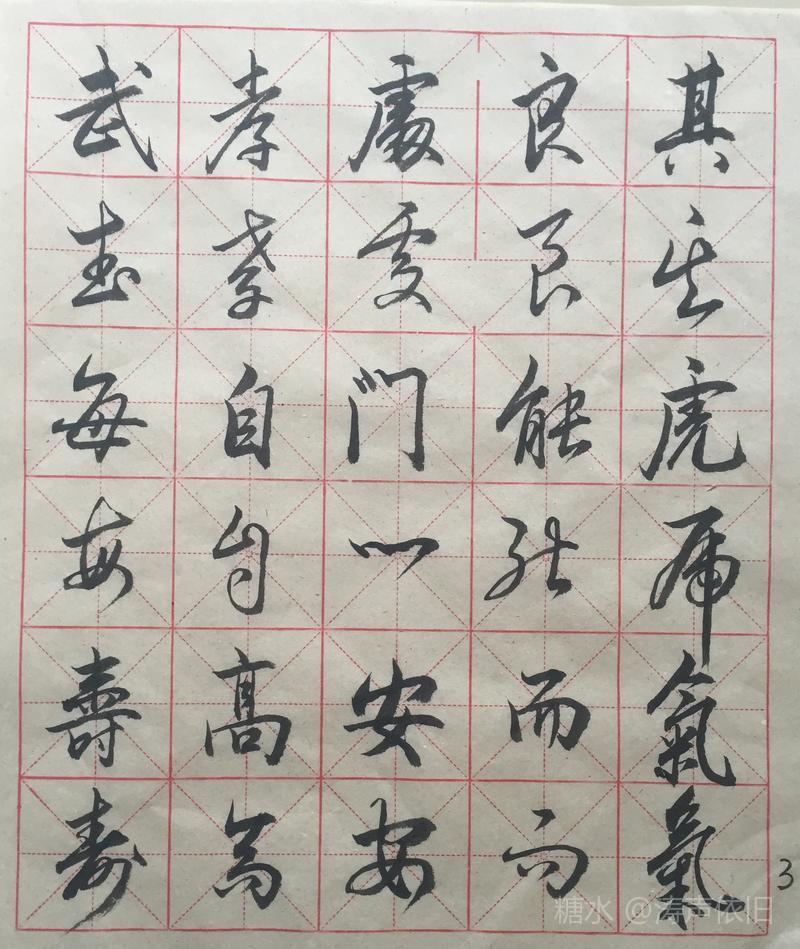 其其虎虎氣氣
良良能能而而
處處門門安安
孝孝自自高高
武武每每壽壽
3
糖水 @涛声依旧